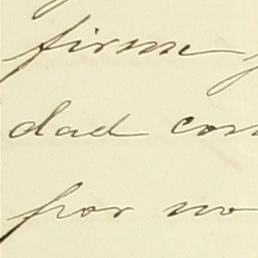 firme
dad con
por no